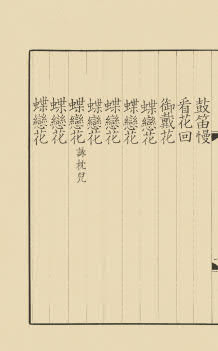 鼓笛慢
看花回
御戴花
蝶戀花
蝶戀花
蝶戀花
蝶戀花
蝶戀花詠枕兒
蝶戀花
蝶戀花